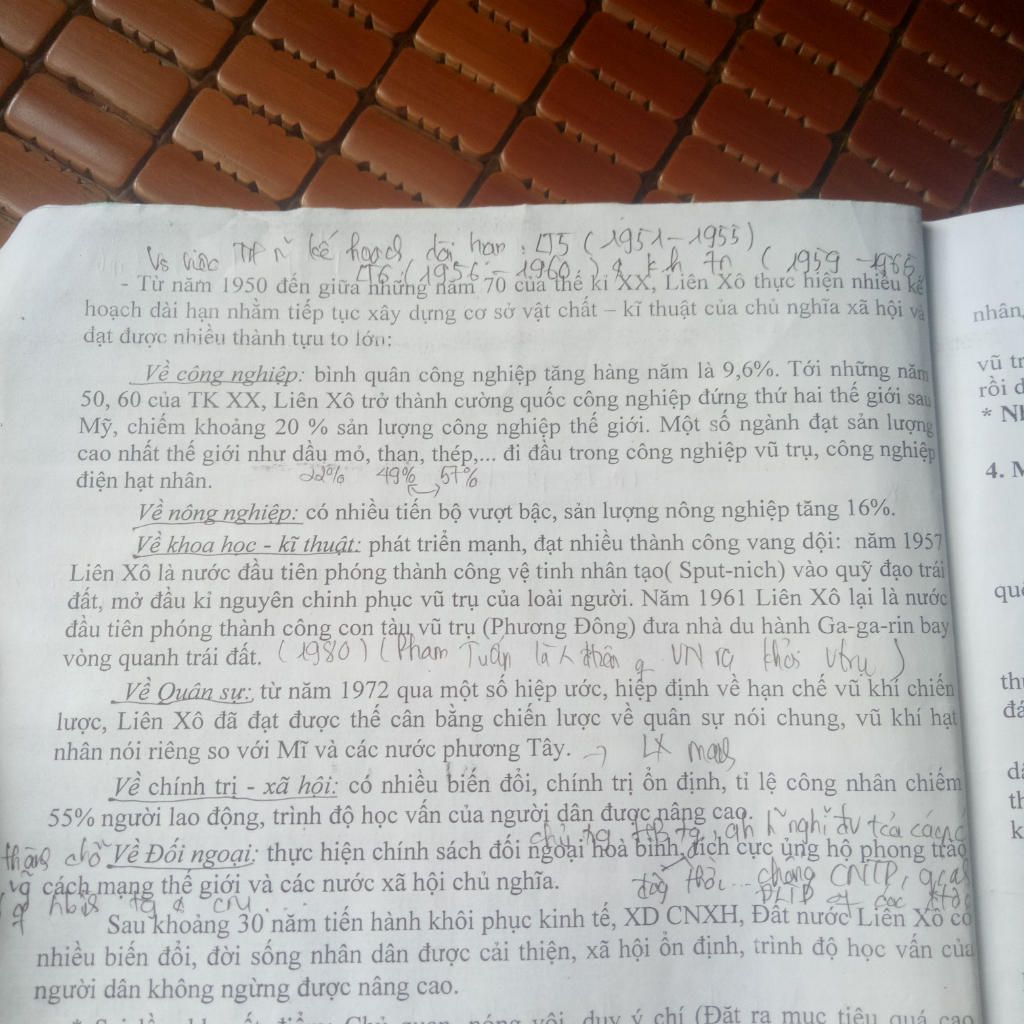 Vs việc TH ~ kế hoạch dài hạn : LT5 ( 1951 – 1955 )
LT6 ( 1956 – 1960 ) & k h 7n ( 1959 – 1965
- Từ năm 1950 đến giữa những năm 70 của thế kỉ XX, Liên Xô thực hiện nhiều kế
hoạch dài hạn nhằm tiếp tục xây dựng cơ sở vật chất – kĩ thuật của chủ nghĩa xã hội và
đạt được nhiều thành tựu to lớn:
Về công nghiệp: bình quân công nghiệp tăng hàng năm là 9,6%. Tới những năm
50, 60 của TK XX, Liên Xô trở thành cường quốc công nghiệp đứng thứ hai thế giới sau
Mỹ, chiếm khoảng 20 % sản lượng công nghiệp thế giới. Một số ngành đạt sản lượng
cao nhất thế giới như dầu mỏ, than, thép,... đi đầu trong công nghiệp vũ trụ, công nghiệp
điện hạt nhân. 22% 49% 57%
Về nông nghiệp: có nhiều tiến bộ vượt bậc, sản lượng nông nghiệp tăng 16%.
Về khoa học - kĩ thuật: phát triển mạnh, đạt nhiều thành công vang dội: năm 1957
Liên Xô là nước đầu tiên phóng thành công vệ tinh nhân tạo( Sput-nich) vào quỹ đạo trái
đất, mở đầu kỉ nguyên chinh phục vũ trụ của loài người. Năm 1961 Liên Xô lại là nước
đầu tiên phóng thành công con tàu vũ trụ (Phương Đông) đưa nhà du hành Ga-ga-rin bay
vòng quanh trái đất. (1980) (Phạm Tuân là VN ra khỏi vtrụ )
Về Quân sự: từ năm 1972 qua một số hiệp ước, hiệp định về hạn chế vũ khí chiến
lược, Liên Xô đã đạt được thế cân bằng chiến lược về quân sự nói chung, vũ khí hạt
nhân nói riêng so với Mĩ và các nước phương Tây. → LX mạnh
Về chính trị - xã hội: có nhiều biến đổi, chính trị ổn định, tỉ lệ công nhân chiếm
55% người lao động, trình độ học vấn của người dân được nâng cao.
Về Đối ngoại: thực hiện chính sách đối ngoại hoà bình, tích cực ủng hộ phong trào
cách mạng thế giới và các nước xã hội chủ nghĩa. chống CNTD,
Sau khoảng 30 năm tiến hành khôi phục kinh tế, XD CNXH, Đất nước Liên Xô có
nhiều biến đổi, đời sống nhân dân được cải thiện, xã hội ổn định, trình độ học vấn của
người dân không ngừng được nâng cao.
duy ý chí (Đặt ra mục tiêu quá cao
nhân,
vũ tr
rồi d
* Nh
4. M
quố
thu
đá
dâ
th
k